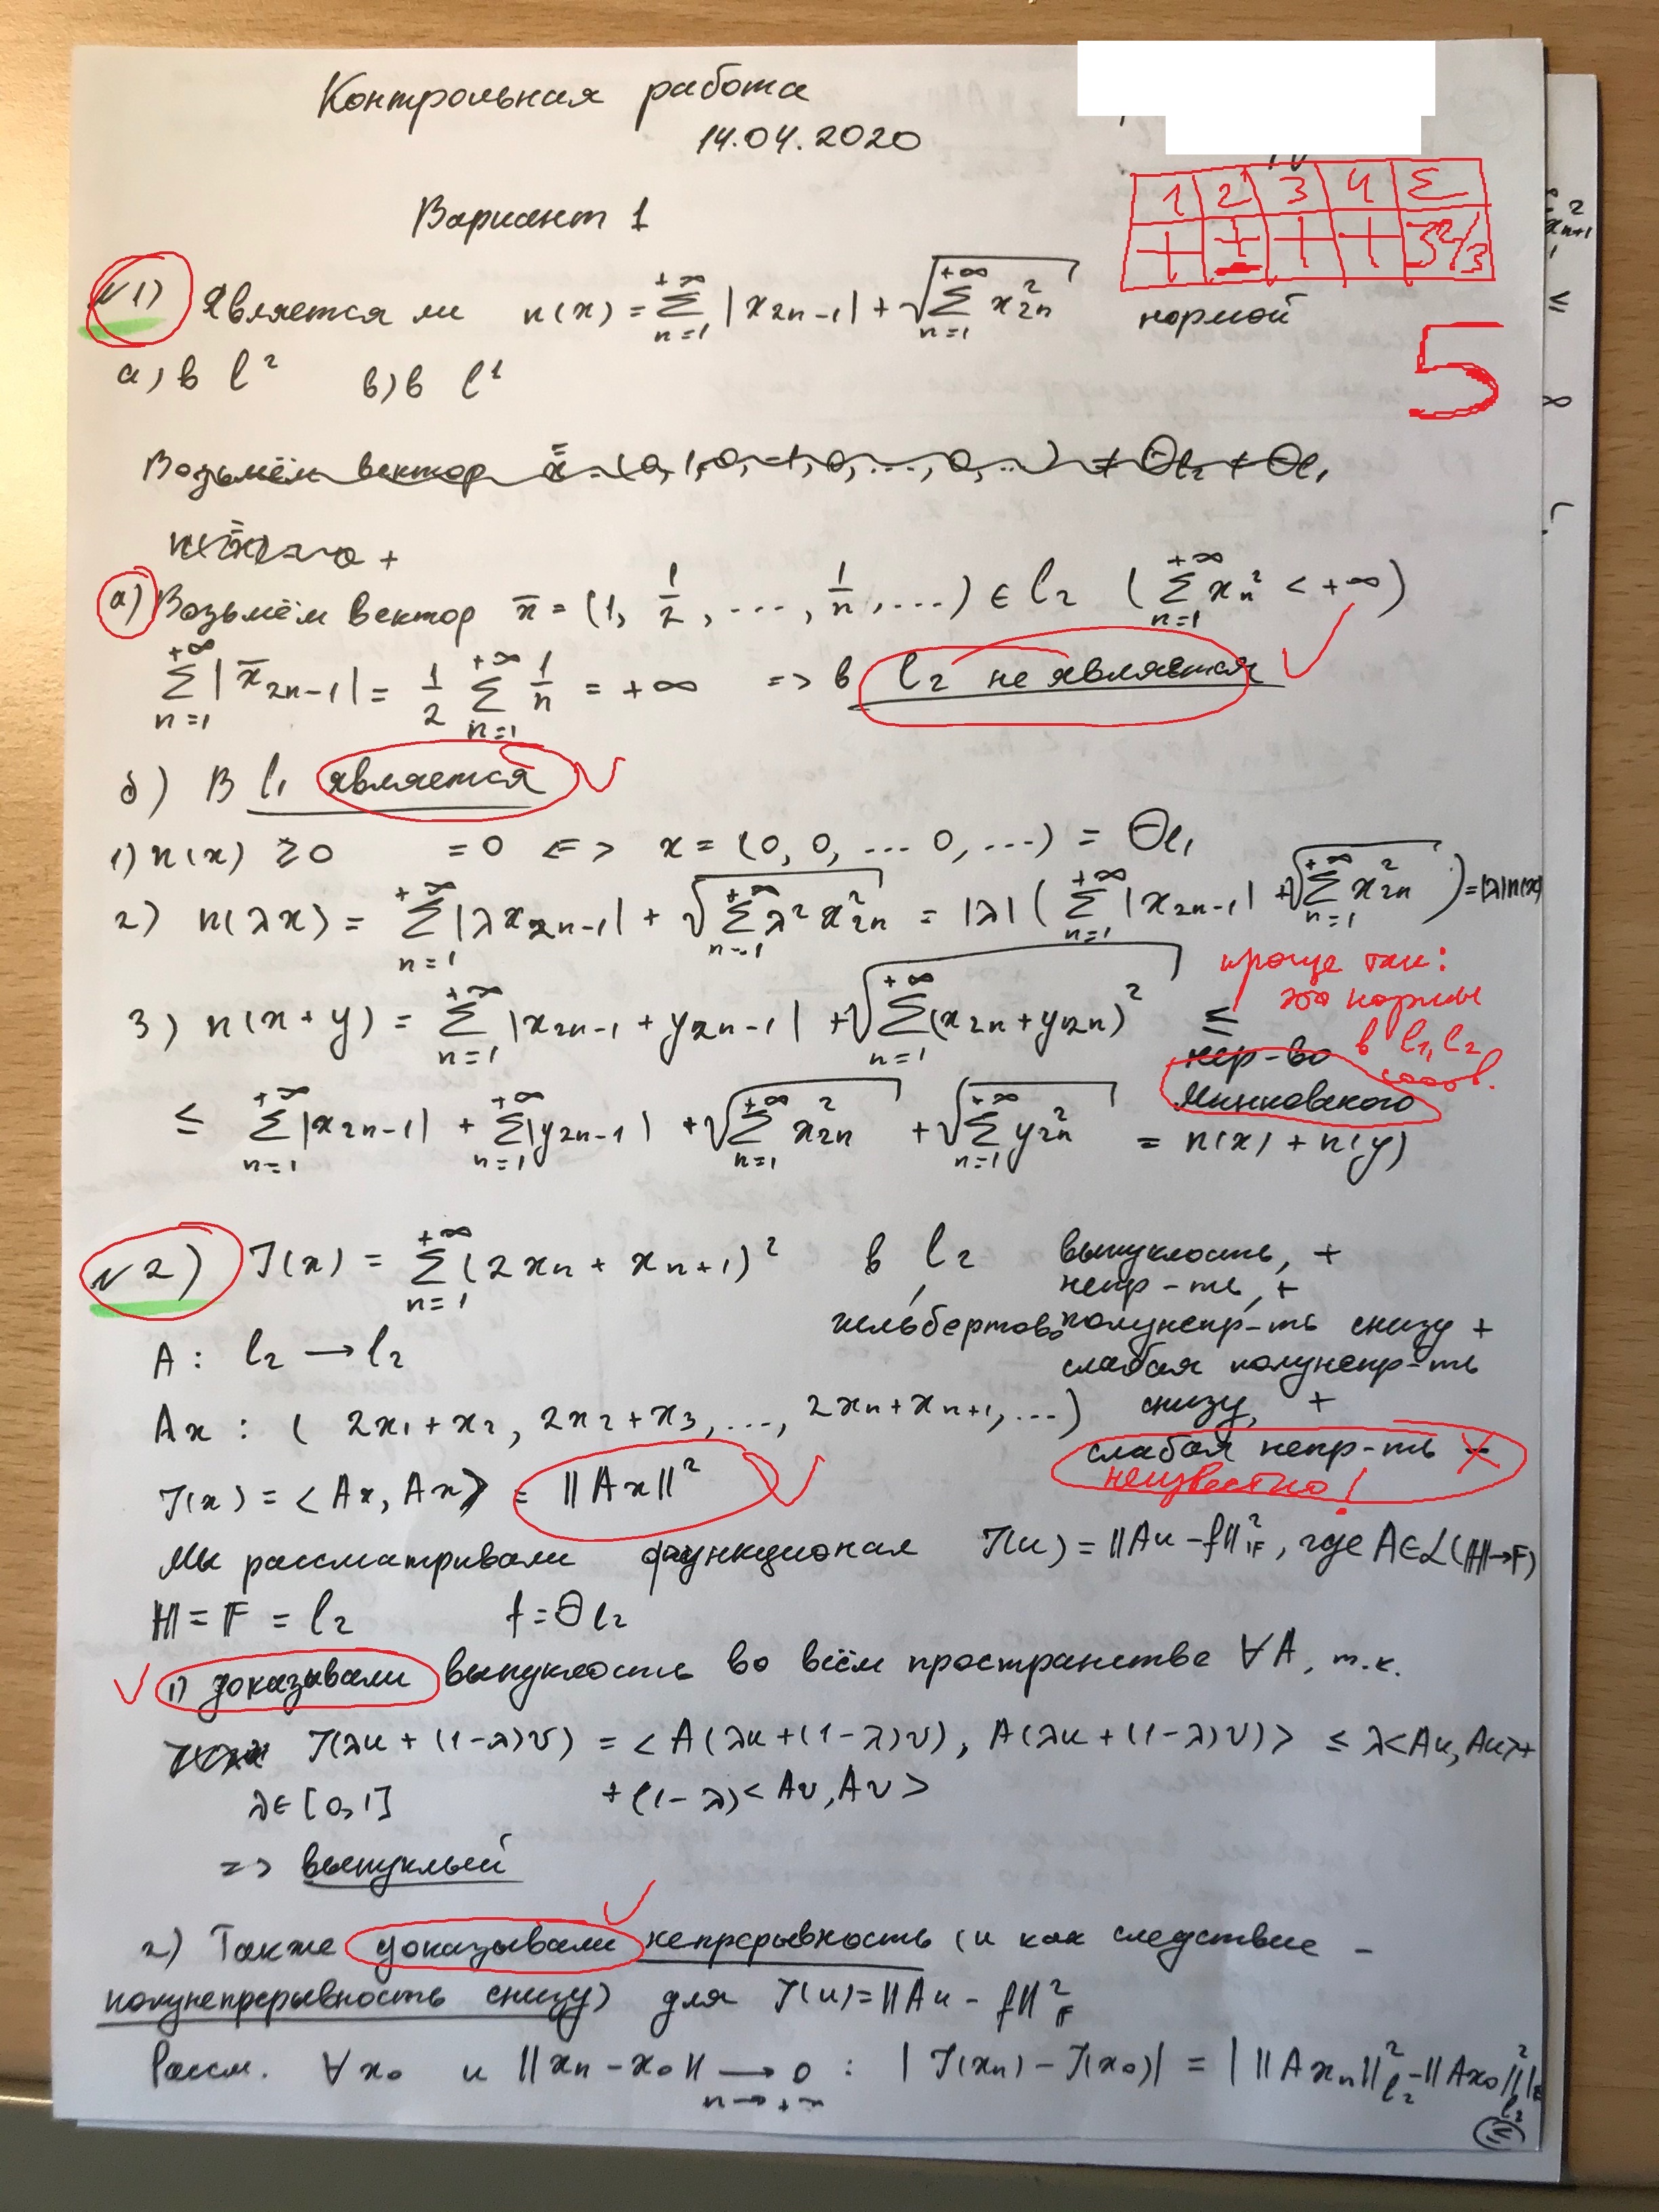 Контрольная работа
14.04.2020
1 2 3 4 Σ
+ ± + + 3 2/3
Вариант 1
№1) Является ли n(x) = Σ_{n=1}^{+∞} |x_{2n-1}| + √(Σ_{n=1}^{+∞} x_{2n}^2) нормой
5
а) в l^2 в) в l^1
Возьмём вектор x̄ = (0, 1, 0, -1, 0, ..., 0, ...) ≠ Θ_{l_2} ≠ Θ_{l_1}
а) Возьмём вектор x̄ = (1, 1/2, ..., 1/n, ...) ∈ l_2 (Σ_{n=1}^{+∞} x_n^2 < +∞)
Σ_{n=1}^{+∞} |x̄_{2n-1}| = 1/2 Σ_{n=1}^{+∞} 1/n = +∞ => в l_2 не является
б) В l_1 является
1) n(x) ≥ 0 = 0 <=> x = (0, 0, ... 0, ...) = Θ_{l_1}
2) n(λx) = Σ_{n=1}^{+∞} |λx_{2n-1}| + √(Σ_{n=1}^{+∞} λ^2 x_{2n}^2) = |λ| (Σ_{n=1}^{+∞} |x_{2n-1}| + √(Σ_{n=1}^{+∞} x_{2n}^2)) = |λ|n(x)
проще так:
это нормы
в l_1, l_2
соотв.
3) n(x+y) = Σ_{n=1}^{+∞} |x_{2n-1} + y_{2n-1}| + √(Σ_{n=1}^{+∞} (x_{2n} + y_{2n})^2) ≤
нер-во
Минковского
≤ Σ_{n=1}^{+∞} |x_{2n-1}| + Σ_{n=1}^{+∞} |y_{2n-1}| + √(Σ_{n=1}^{+∞} x_{2n}^2) + √(Σ_{n=1}^{+∞} y_{2n}^2) = n(x) + n(y)
№2) J(x) = Σ_{n=1}^{+∞} (2x_n + x_{n+1})^2 в l_2
гильбертово
выпуклость, +
непр-ть, +
полунепр-ть снизу +
слабая полунепр-ть
снизу, +
слабая непр-ть
неизвестно!
A: l_2 → l_2
Ax : (2x_1 + x_2, 2x_2 + x_3, ..., 2x_n + x_{n+1}, ...)
J(x) = <Ax, Ax> = ||Ax||^2
Мы рассматривали функционал J(u) = ||Au - f||^2_F, где A∈L(H→F)
H = F = l_2 f = Θ_{l_2}
1) доказывали выпуклость во всём пространстве ∀A, т.к.
J(λu + (1-λ)v) = <A(λu + (1-λ)v), A(λu + (1-λ)v)> ≤ λ<Au, Au> +
λ∈[0,1] + (1-λ)<Av, Av>
=> выпуклый
2) Также доказывали непрерывность (и как следствие -
полунепрерывность снизу) для J(u) = ||Au - f||^2_F
Рассм. ∀x_0 и ||x_n - x_0|| →_{n→+∞} 0 : |J(x_n) - J(x_0)| = | ||Ax_n||^2_{l_2} - ||Ax_0||^2_{l_2} |